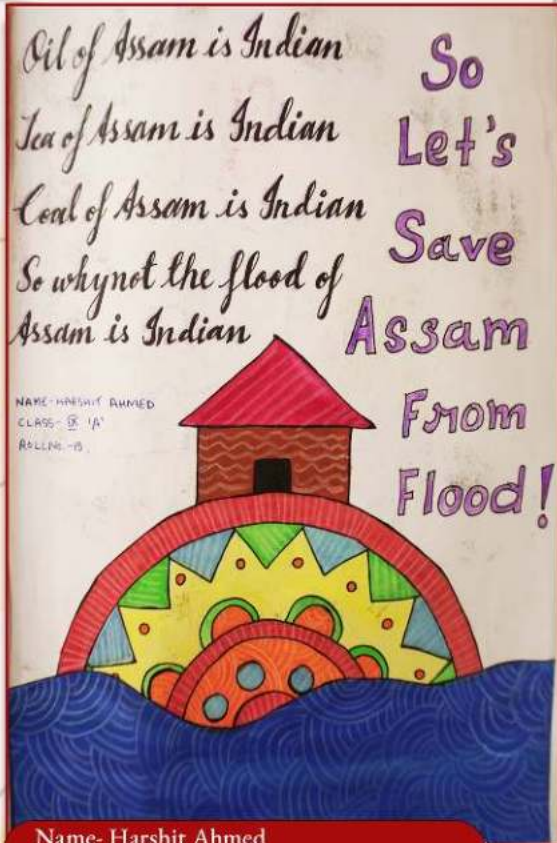 Oil of Assam is Indian
Tea of Assam is Indian
Coal of Assam is Indian
So whynot the flood of
Assam is Indian
So
Let's
Save
Assam
From
Flood!
NAME-HARSHIT AHMED
CLASS- IX 'A'
ROLLNO.-13.
Name- Harshit Ahmed